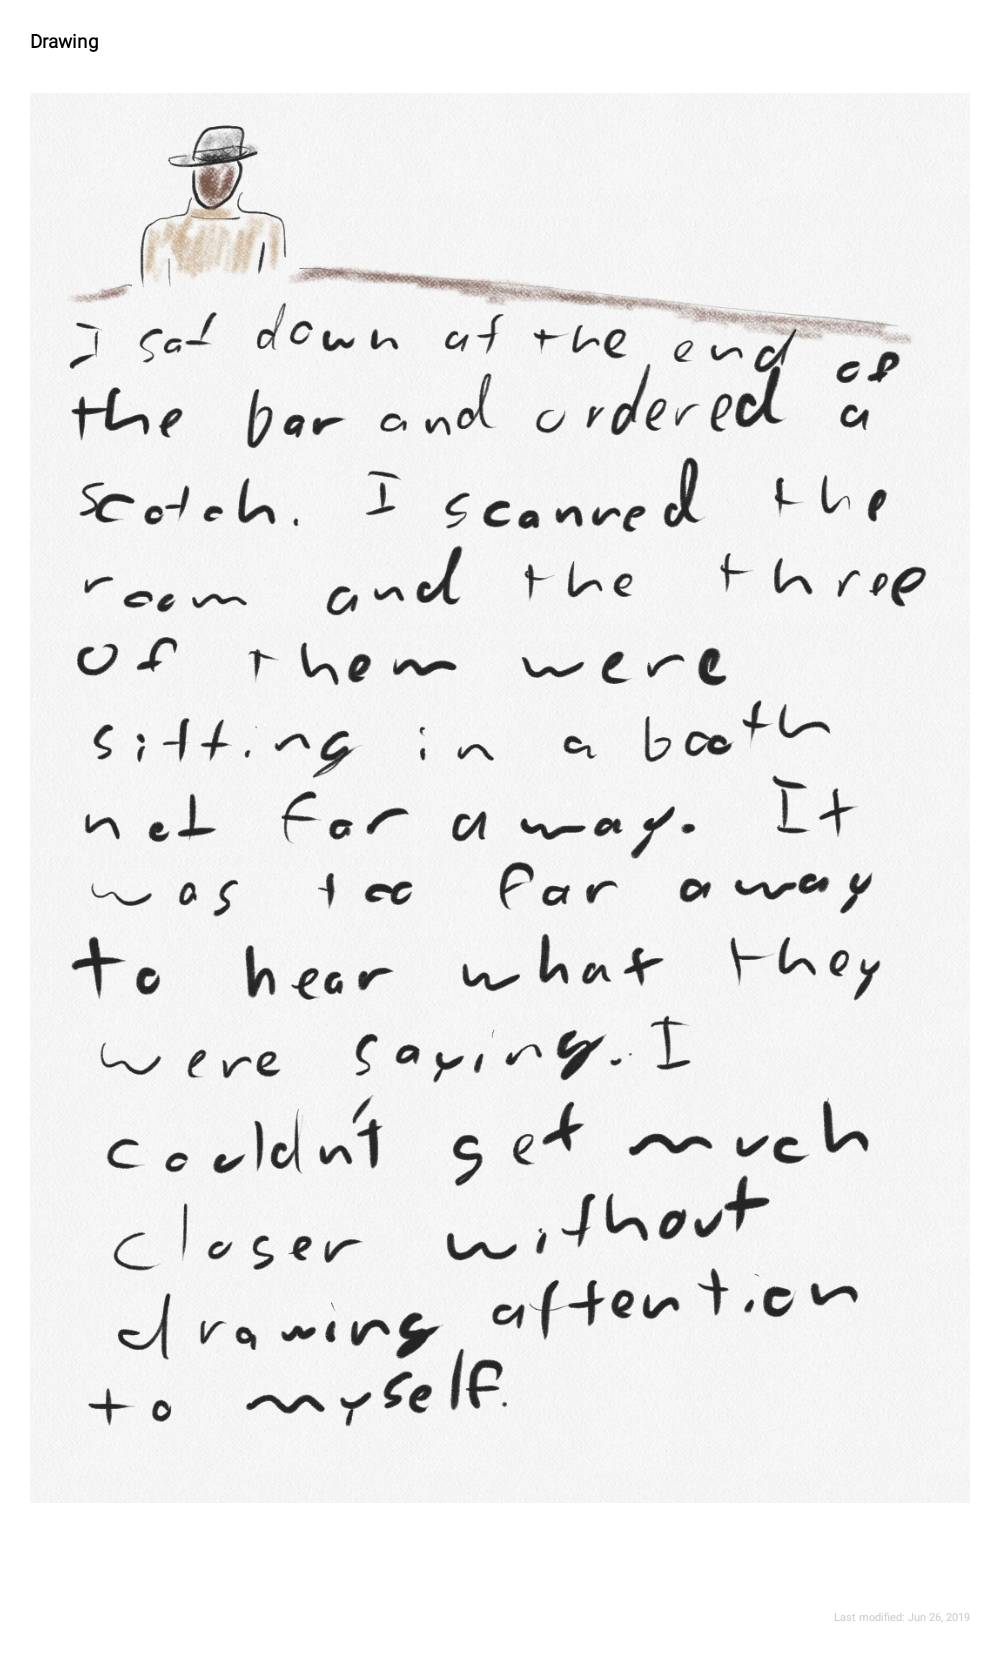 Drawing
I sat down at the end of
the bar and ordered a
scotch. I scanned the
room and the three
of them were
sitting in a booth
not far away. It
was too far away
to hear what they
were saying. I
couldn't get much
closer without
drawing attention
to myself.
Last modified: Jun 26, 2019